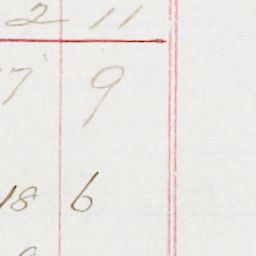 2 11
7 9
18 6